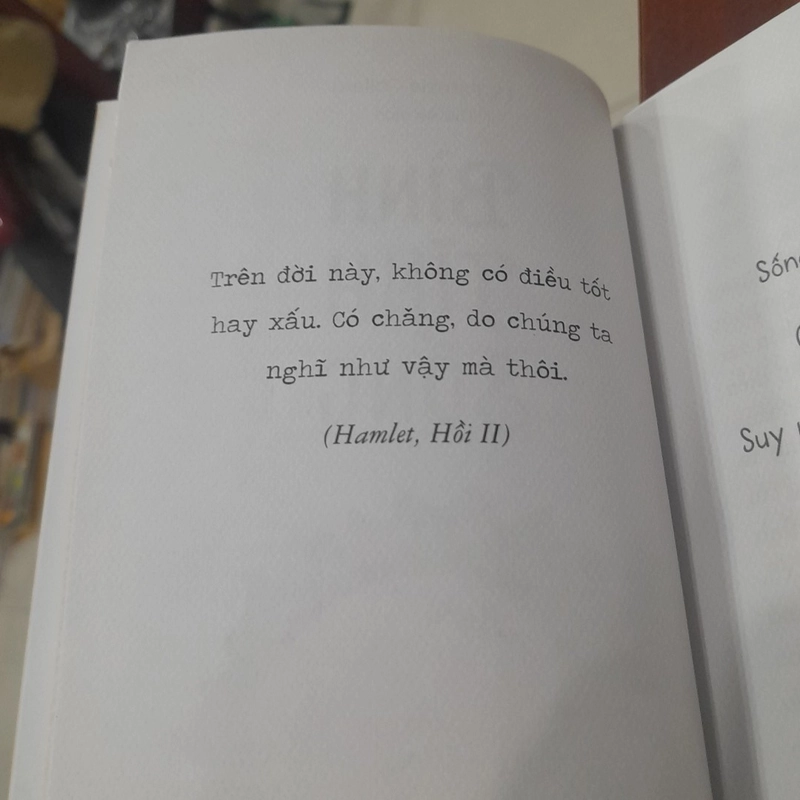 Trên đời này, không có điều tốt
hay xấu. Có chăng, do chúng ta
nghĩ như vậy mà thôi.
(Hamlet, Hồi II)
BÌNH
Sống
Suy